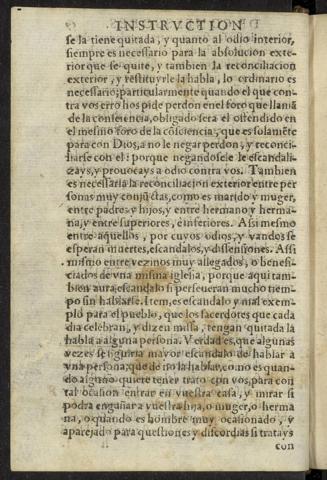 INSTRVCTION
se la tiene quitada, y quanto al odio interior,
siempre es necessario para la absolucion exte-
rior que se quite, y tambien la reconciliacion
exterior, y restituyrle la habla, lo ordinario es
necessario; particularmente quando el que con-
tra vos erro hos pide perdon en el foro que llamã
de la consciencia, obligado sera el offendido en
el mesmo foro de la cõsciencia, que es solamẽte
para con Dios, a no le negar perdon, y reconci-
liarse con el: porque negandosele le escandali-
zays, y prouocays a odio contra vos. Tambien
es necessaria la reconciliacion exterior entre per
sonas muy conjũctas, como es marido y muger,
entre padres y hijos, y entre hermano y herma-
na, y entre superiores, e inferiores. Assi mesmo
entre aquellos, por cuyos odios, y vandos se
esperan muertes, escandalos, y dissensiones. Assi
mismo entre vezinos muy allegados, o benefi-
ciados de vna misma iglesia, porque aqui tam-
bien aura escandalo si perseueran mucho tiem-
po sin hablarse. Item, es escandalo y mal exem-
plo para el pueblo, que los sacerdotes que cada
dia celebran, y dizen missa, tengan quitada la
habla a alguna persona. Verdad es, que algunas
vezes se siguiria mayor escandalo de hablar a
vna persona, que de no la hablar, como es quan-
do alguno quiere tener trato con vos, para con
tal ocasion entrar en vuestra casa, y mirar si
podra engañar a vuestra hija, o muger, o herma
na, o quando es hombre muy ocasionado, y
aparejado para questiones y discordias si tratays
con